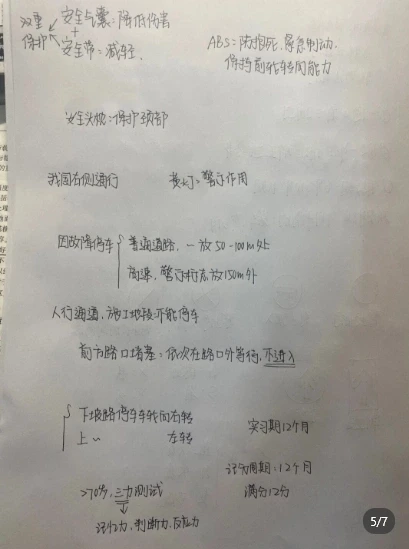 双重保护
安全气囊：降低伤害
+
安全带：减轻.
ABS：防抱死，紧急制动.
保持前轮转向能力
安全头枕：保护颈部
我国右侧通行
黄灯：警示作用
因故障停车
普通道路，一放50-100m处
高速，警示标志放150m外
人行通道，施工地段不能停车
前方路口堵塞：依次在路口外等待，不进入
下坡路停车车轮向右转
上〃 左转
实习期12个月
记分周期：12个月
满分12分
>70岁，三力测试
记忆力，判断力，反应力
5/7